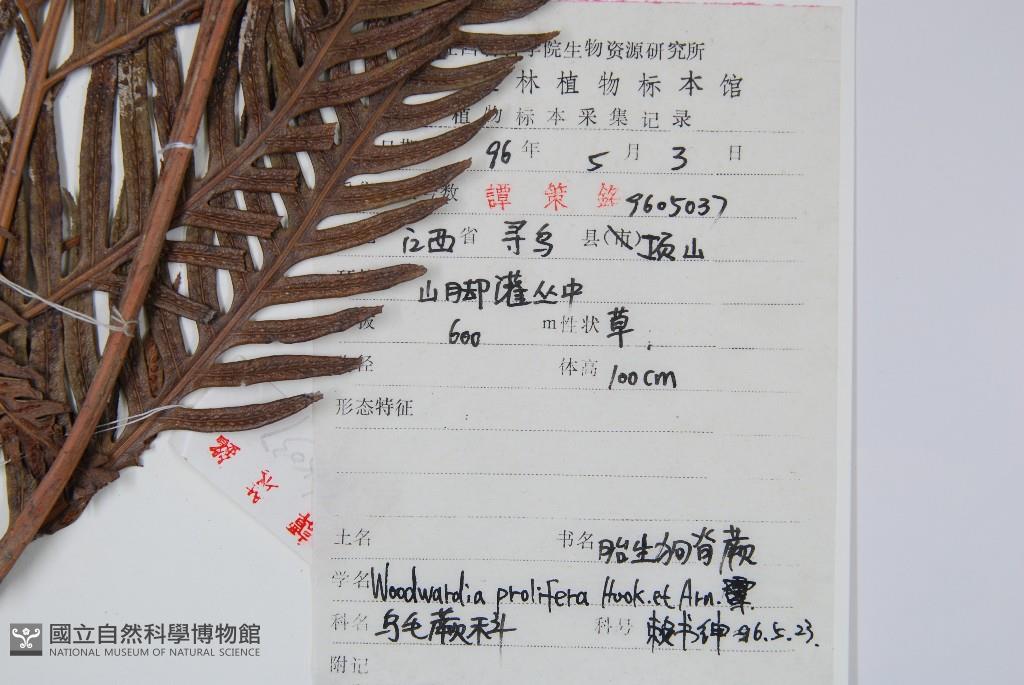 学院生物资源研究所
林植物标本馆
植物标本采集记录
96年 5月 3日
数 譚策銘 9605037
江西省 寻乌 县(市) 项山
山脚灌丛中
600 m性状 草.
体高 100cm
形态特征
土名 书名 胎生狗脊蕨
学名 Woodwardia prolifera Hook. et Arn.
科名 乌毛蕨科 科号 96.5.23.
附记
譚策銘
國立自然科學博物館
NATIONAL MUSEUM OF NATURAL SCIENCE